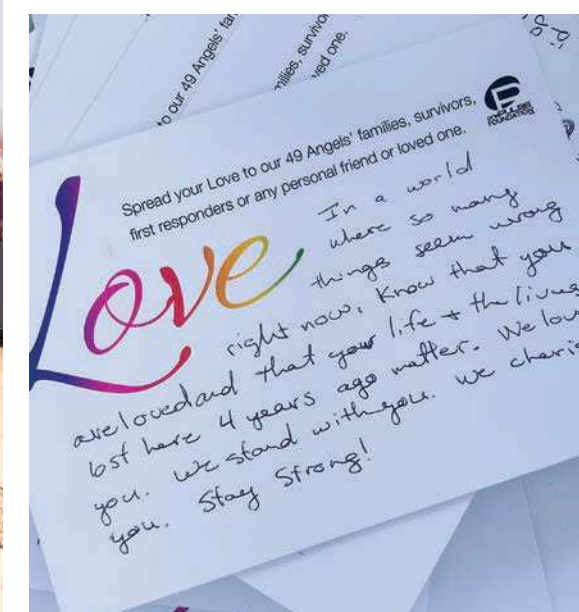 o our 49 Angels' fa
milies, survivo
ved one.
Spread your Love to our 49 Angels' families, survivors,
first responders or any personal friend or loved one.
PULSE
FOUNDATION
Love
In a world
where so many
things seem wrong
right now, know that you
are loved and that your life + the lives
lost here 4 years ago matter. We love
you. We stand with you. We cheris
you. Stay Strong!